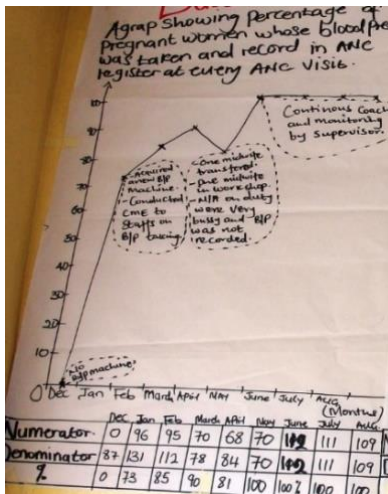 A grap showing Percentage of
Pregnant women whose bloodPre
was taken and record in ANC
register at every ANC visit.
Continous Coach
and monitoring
by supervisor
-Acquired
a new B/P
Machine
-Conducted
CME to
Staffs on
B/P taking
-One midwife
transferred.
-One midwife
in workshop
-M/A on duty
were very
busy and B/P
was not
recorded.
90
80
70
60
50
40
30
20
10
0
No
B/p machine
Dec Jan Feb March April May June July Aug
(Months)
Dec Jan Feb March April May June July Aug
Numerator 0 96 95 70 68 70 111 109
Denominator 87 131 112 78 84 70 111 109
% 0 73 85 90 81 100 100% 100 100